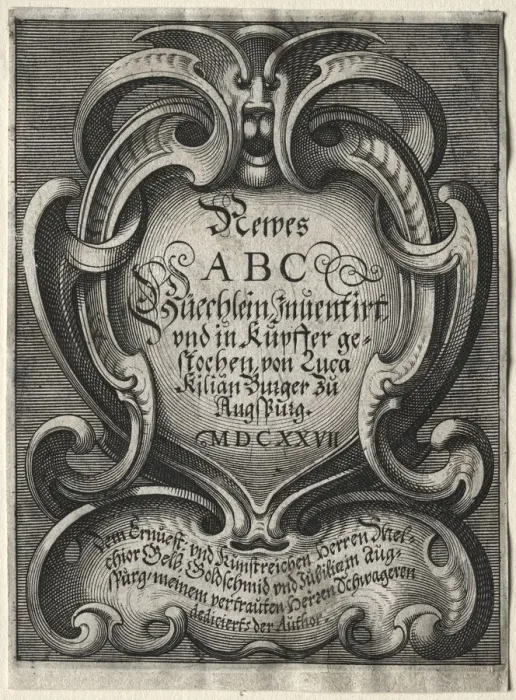 Newes
ABC
Büechlein Inuentirt
vnd in Kupffer ge-
stochen, von Luca
Kilian Burger Zu
Augspurg.
MDCXXVII
Dem Ernuest: vnd Kunstreichen Herren Mel-
chior Gelb Goldschmid vnd Jubilier in Aug-
spurg, meinem vertrauten Herren Schwageren
dediciert der Author.